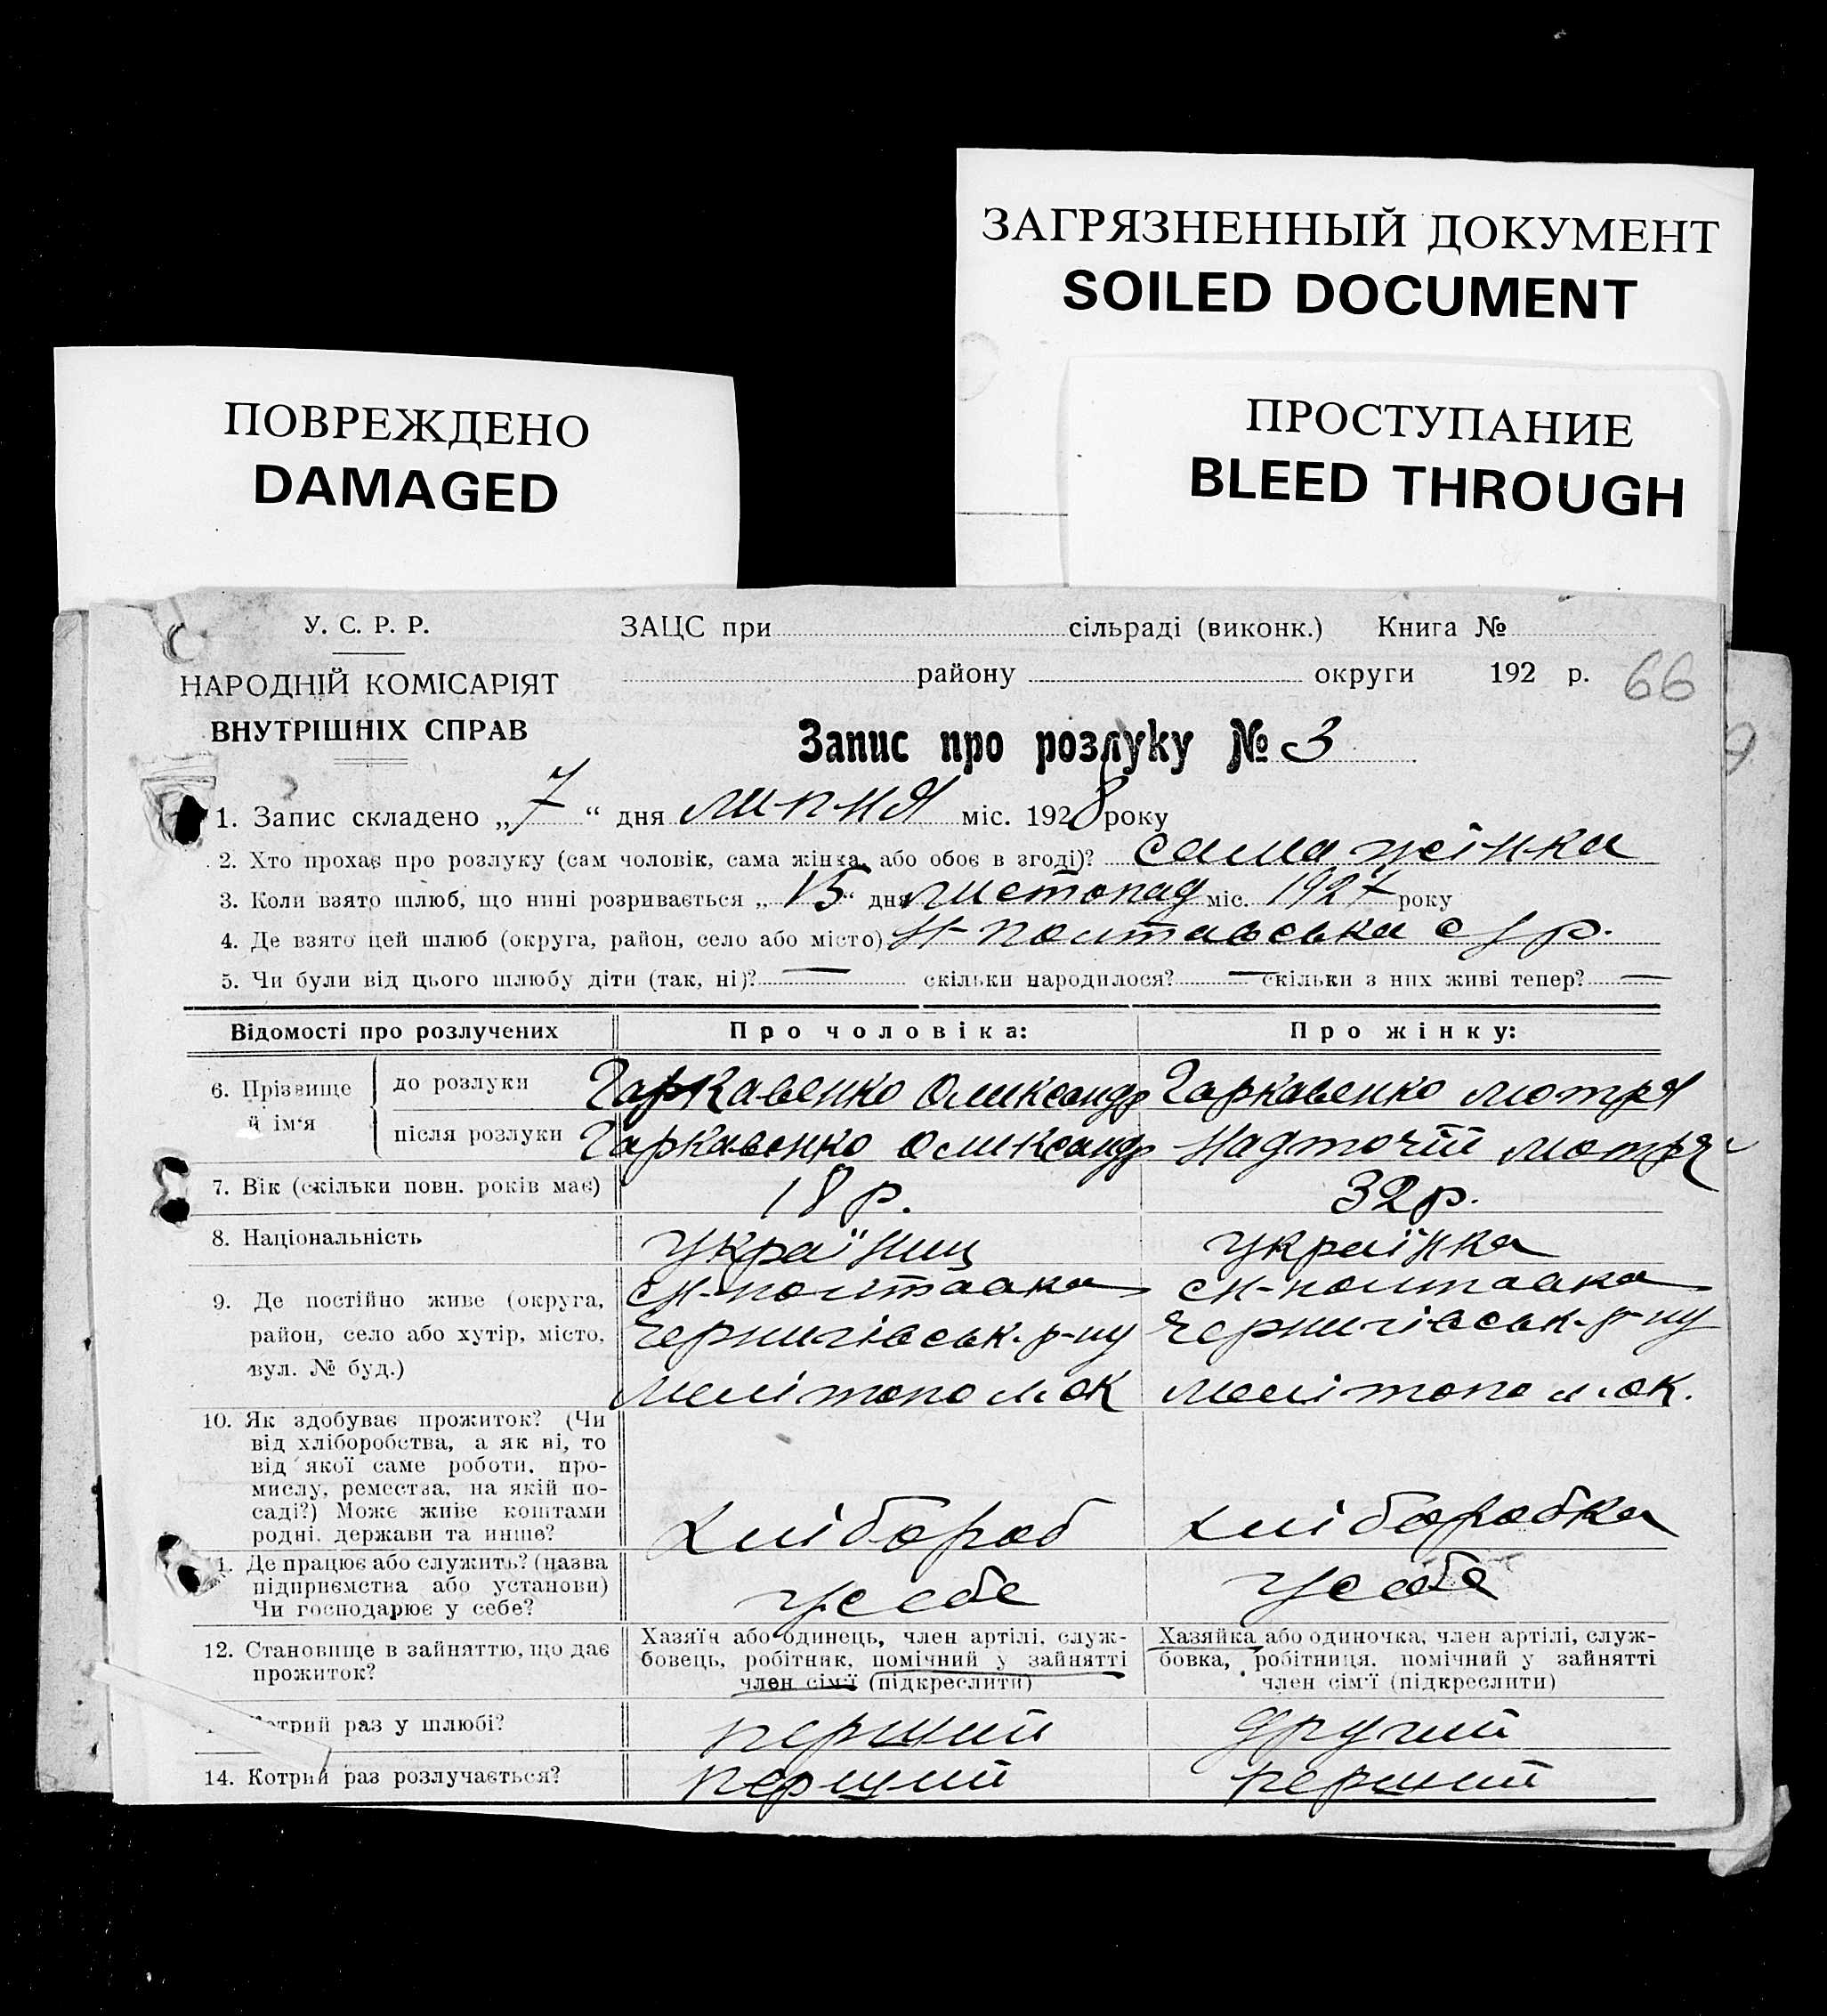 ЗАГРЯЗНЕННЫЙ ДОКУМЕНТ
SOILED DOCUMENT
ПОВРЕЖДЕНО
DAMAGED
ПРОСТУПАНИЕ
BLEED THROUGH
У. С. Р. Р.
НАРОДНІЙ КОМІСАРІЯТ
ВНУТРІШНІХ СПРАВ
ЗАЦС при сільраді (виконк.) Книга №
району округи 192 р. 66
Запис про розлуку № 3
1. Запис складено „7“ дня липня міс. 1928 року
2. Хто прохає про розлуку (сам чоловік, сама жінка, або обоє в згоді)? сама жінка
3. Коли взято шлюб, що нині розривається „15“ дня листопад міс. 1927 року
4. Де взято цей шлюб (округа, район, село або місто) Н-Полтавська с/р.
5. Чи були від цього шлюбу діти (так, ні)? — скільки народилося? — скільки з них живі тепер? —
Відомості про розлучених Про чоловіка: Про жінку:
6. Прізвище й ім'я до розлуки Гаркавенко Олександр Гаркавенко Мотря
після розлуки Гаркавенко Олександр Надточій Мотря
7. Вік (скільки повн. років має) 18 р. 32 р.
8. Національність Українец Українка
9. Де постійно живе (округа, с Н-Полтавка с Н-Полтавка
район, село або хутір, місто, Чернигівськ. р-ну Чернигівськ. р-ну
вул. № буд.) Мелітопол. ок Мелітопол. ок.
10. Як здобуває прожиток? (Чи
від хліборобства, а як ні, то
від якої саме роботи, про-
мислу, ремества, на якій по-
саді?) Може живе коштами
родні, держави та инше? Хлібороб Хліборобка
1. Де працює або служить? (назва
підприємства або установи)
Чи господарює у себе? У себе У себе
12. Становище в зайняттю, що дає
прожиток?
Хазяїн або одинець, член артілі, служ-
бовець, робітник, помічний у зайнятті
член сім'ї (підкреслити)
Хазяйка або одиночка, член артілі, служ-
бовка, робітниця, помічний у зайнятті
член сім'ї (підкреслити)
раз у шлюбі? перший другий
14. Котрий раз розлучається? перший перший